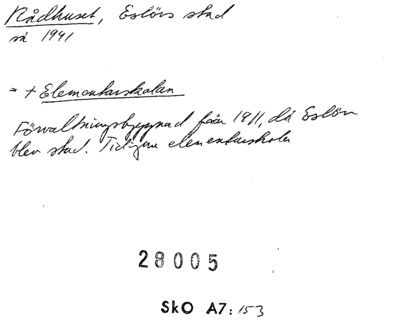 Rådhuset, Eslövs stad
så 1941
= + Elementarskolan
Förvaltningsbyggnad från 1911, då Eslöv
blev stad. Tidigare elementarskola
28005
SkO A7:153